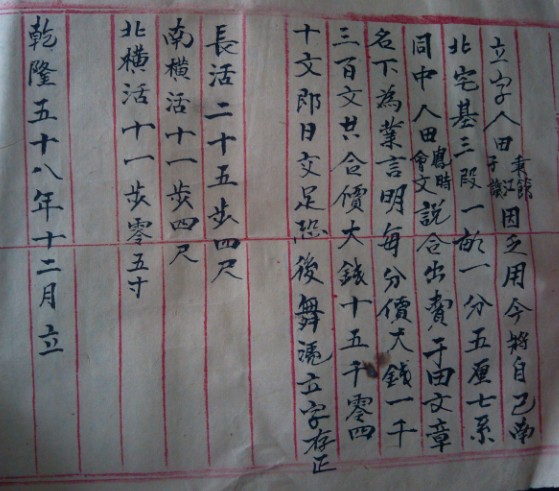 立字人田秉鐸子江謨因乏用今將自己南
北宅基三段一畝一分五厘七系
同中人田應時會文說合出賣于田文章
名下為業言明每分價大錢一千
三百文共合價大錢十五千零四
十文即日交足恐後無憑立字存正
長活二十五步四尺
南橫活十一步四尺
北橫活十一步零五寸
乾隆五十八年十二月立